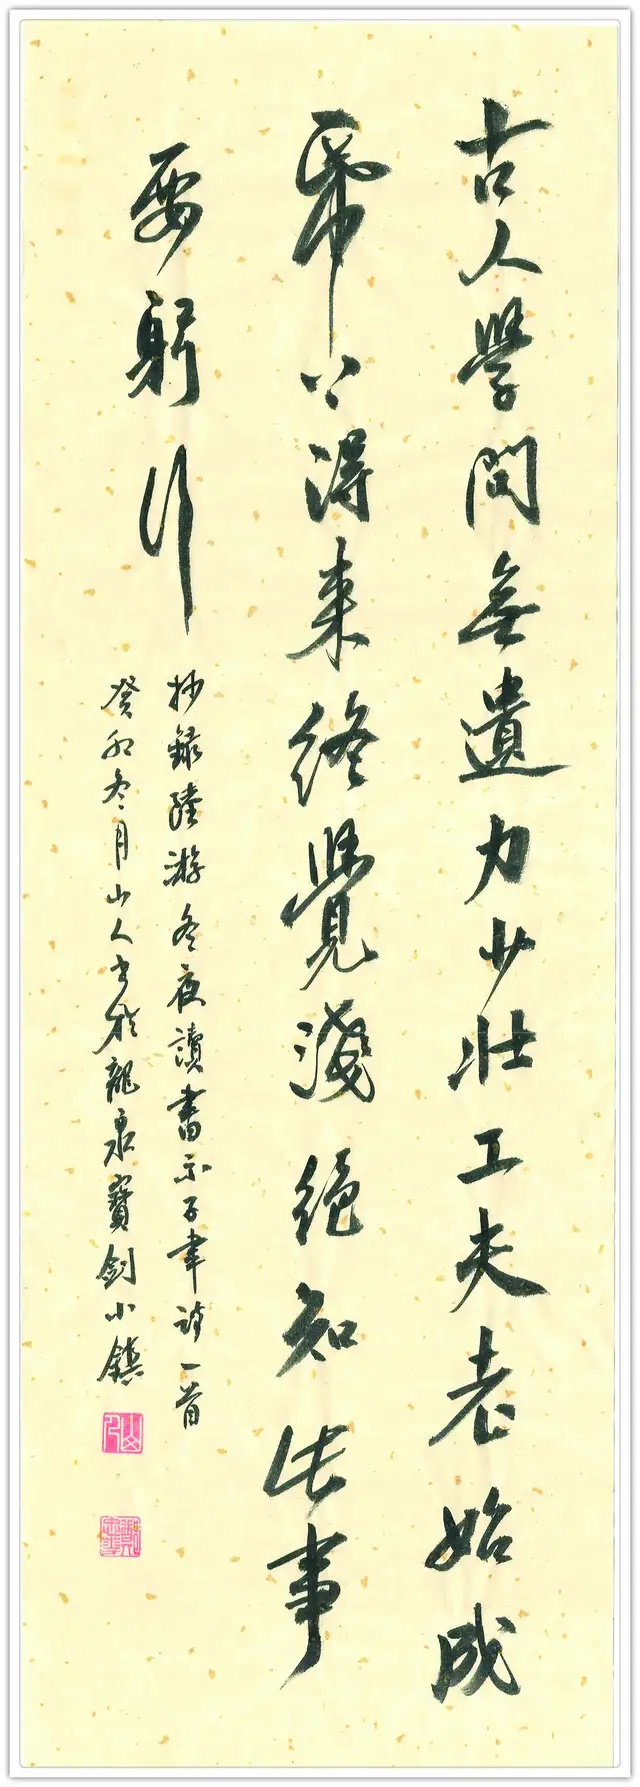 古人學問無遺力少壯工夫老始成
帋上得来終覺淺絕知此事
要躬行
抄錄陸游冬夜讀書示子聿詩一首
癸卯冬月山人书於龍泉寶劍小鎮
山人